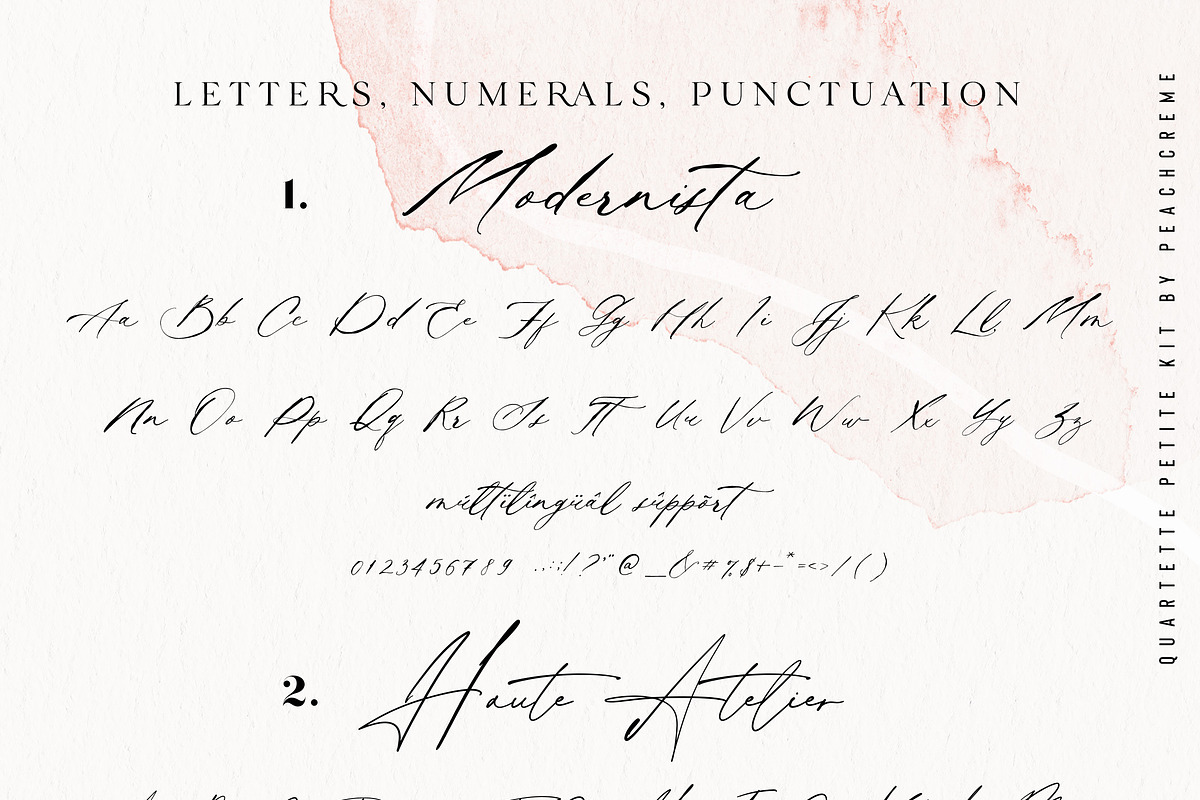 LETTERS, NUMERALS, PUNCTUATION
1. Modernista
Aa Bb Cc Dd Ee Ff Gg Hh Ii Jj Kk Ll Mm
Nn Oo Pp Qq Rr Ss Tt Uu Vv Ww Xx Yy Zz
múltïlîngüâl sûppõrt
0123456789 .,:;!?'"@_&#%$+-*=<>/()
2. Haute Atelier
QUARTETTE PETITE KIT BY PEACHCREME